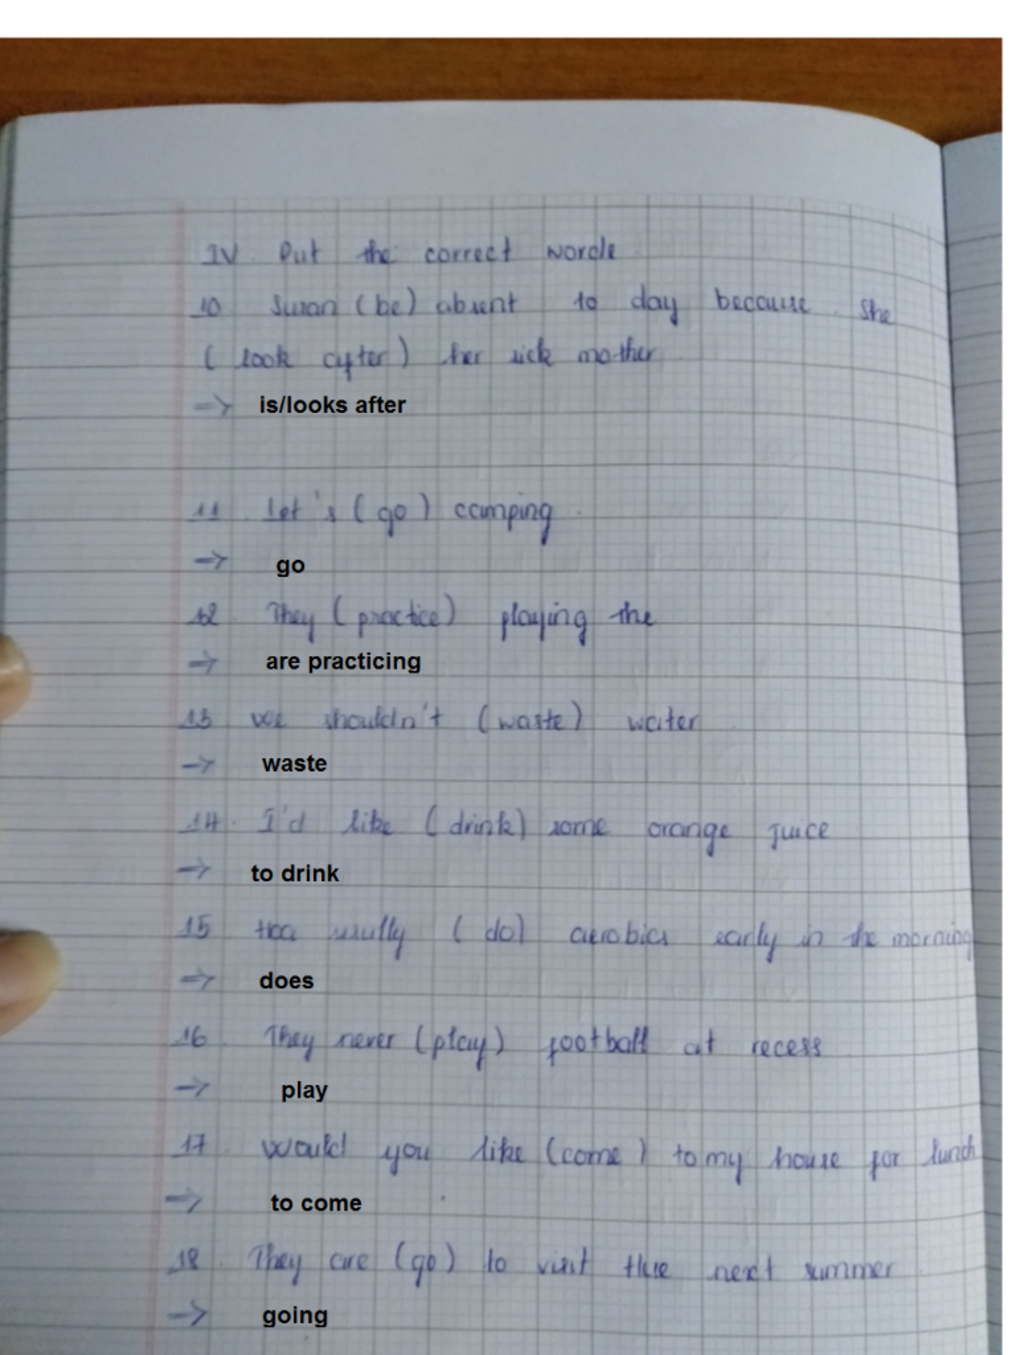 IV. Put the correct words
10 Susan (be) absent to day because she
( look after ) her sick mother
-> is/looks after
11. Let's ( go ) camping
-> go
12 They ( practice ) playing the
-> are practicing
13 we shouldn't (waste) water
-> waste
14. I'd like ( drink) some orange juice
-> to drink
15 Hoa usully ( do) aerobics early in the morning
-> does
16 They never (play) football at recess
-> play
17. Would you like (come ) to my house for lunch
-> to come
18 They are (go) to visit Hue next summer
-> going